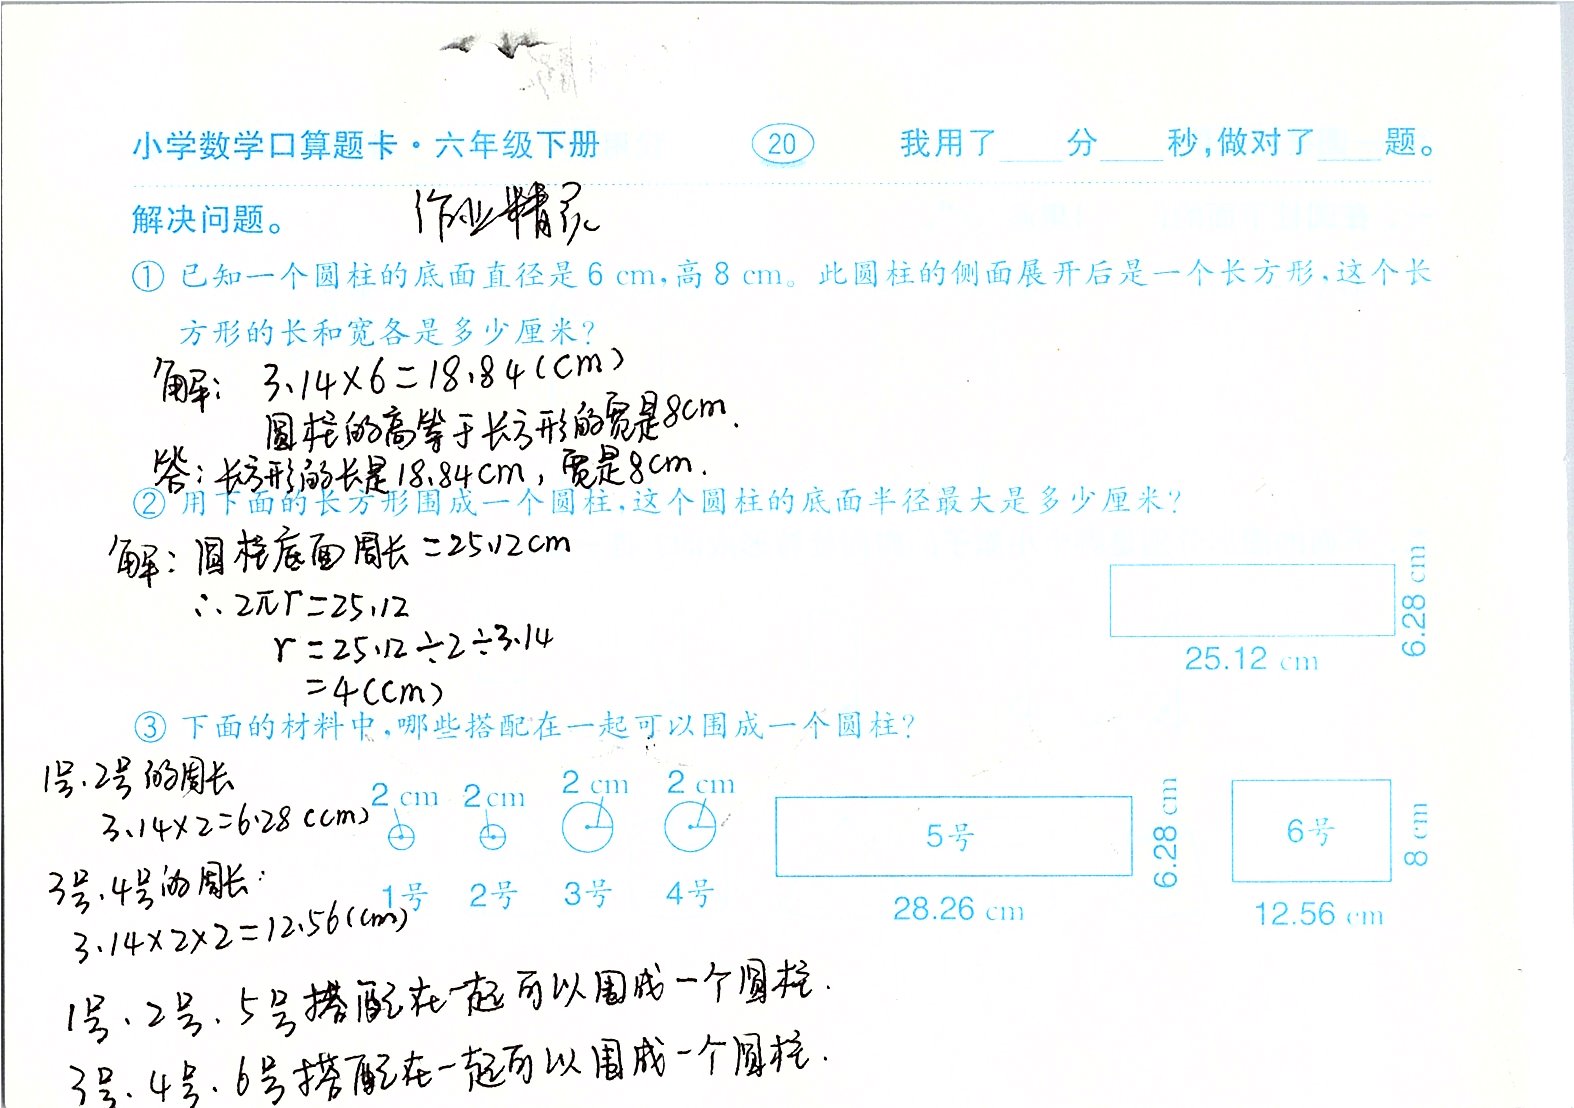 小学数学口算题卡·六年级下册 20 我用了____分____秒,做对了____题。
解决问题。 作业精灵
① 已知一个圆柱的底面直径是6 cm,高8 cm。此圆柱的侧面展开后是一个长方形,这个长
方形的长和宽各是多少厘米?
解: 3.14×6=18.84(cm)
圆柱的高等于长方形的宽是8cm.
答:长方形的长是18.84cm,宽是8cm.
② 用下面的长方形围成一个圆柱,这个圆柱的底面半径最大是多少厘米?
解:圆柱底面周长=25.12cm
∴2πr=25.12
r=25.12÷2÷3.14
=4(cm)
6.28 cm
25.12 cm
③ 下面的材料中,哪些搭配在一起可以围成一个圆柱?
1号.2号的周长
3.14×2=6.28(cm)
3号.4号的周长:
3.14×2×2=12.56(cm)
2 cm 2 cm 2 cm 2 cm
1号 2号 3号 4号
5号 6.28 cm 6号 8 cm
28.26 cm 12.56 cm
1号、2号、5号搭配在一起可以围成一个圆柱.
3号、4号、6号搭配在一起可以围成一个圆柱.